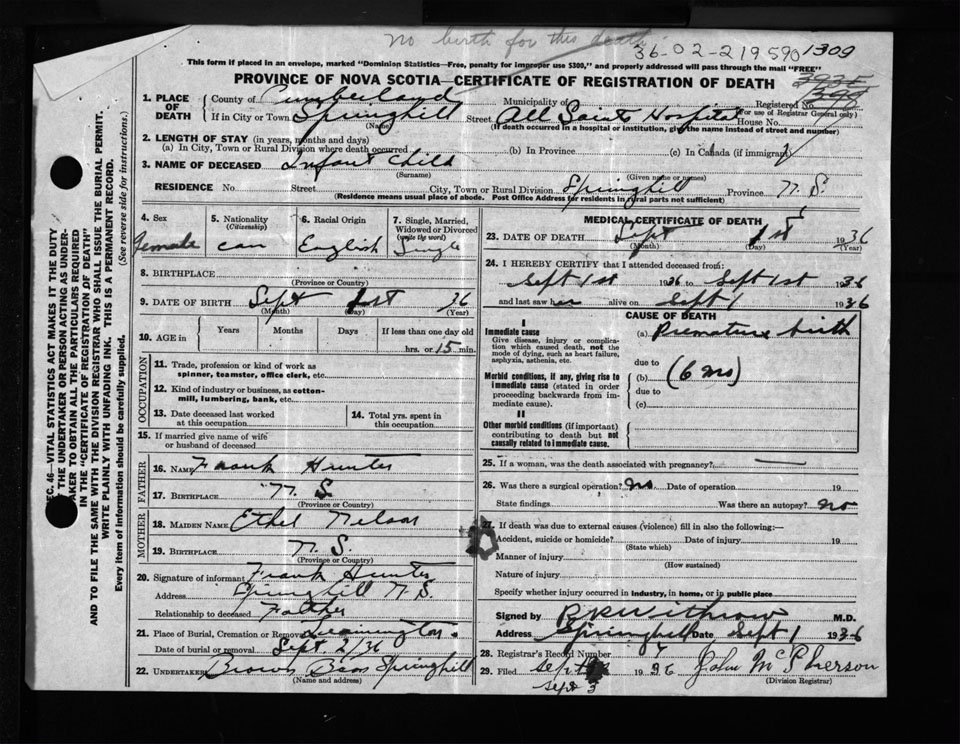 No birth for this death
36-02-219590 1309
This form if placed in an envelope, marked "Dominion Statistics—Free, penalty for improper use $300," and properly addressed will pass through the mail "FREE"
PROVINCE OF NOVA SCOTIA—CERTIFICATE OF REGISTRATION OF DEATH
1. PLACE OF DEATH County of Cumberland Municipality of Registered No.
(For use of Registrar General only)
If in City or Town Springhill Street All Saints Hospital House No.
(Name) (If death occurred in a hospital or institution, give the name instead of street and number)
2. LENGTH OF STAY (in years, months and days)
(a) In City, Town or Rural Division where death occurred (b) In Province (c) In Canada (if immigrant)
3. NAME OF DECEASED Infant Child
(Surname) (Given name or names)
RESIDENCE No Street City, Town or Rural Division Springhill Province N. S.
(Residence means usual place of abode. Post Office Address for residents in rural parts not sufficient)
4. Sex 5. Nationality (Citizenship) 6. Racial Origin 7. Single, Married, Widowed or Divorced (write the word)
female Can English Single
8. BIRTHPLACE
(Province or Country)
9. DATE OF BIRTH Sept 1st 36
(Month) (Day) (Year)
10. AGE in Years Months Days If less than one day old
hrs. or 15 min.
OCCUPATION
11. Trade, profession or kind of work as
spinner, teamster, office clerk, etc.
12. Kind of industry or business, as cotton-
mill, lumbering, bank, etc.
13. Date deceased last worked
at this occupation
14. Total yrs. spent in
this occupation
15. If married give name of wife
or husband of deceased
FATHER
16. NAME Frank Hunter
17. BIRTHPLACE N. S.
(Province or Country)
MOTHER
18. MAIDEN NAME Ethel Nelson
19. BIRTHPLACE N. S.
(Province or Country)
20. Signature of informant Frank Hunter
Address Springhill N. S.
Relationship to deceased Father
21. Place of Burial, Cremation or Removal Leamington
Date of burial or removal Sept. 2/36
22. UNDERTAKER Brown Bros Springhill
(Name and address)
MEDICAL CERTIFICATE OF DEATH
23. DATE OF DEATH Sept 1st 1936
(Month) (Day) (Year)
24. I HEREBY CERTIFY that I attended deceased from:
Sept 1st 1936 to Sept 1st 1936
and last saw her alive on Sept 1 1936
CAUSE OF DEATH
I
Immediate cause (a) Premature birth
Give disease, injury or complication
which caused death, not the
mode of dying, such as heart failure,
asphyxia, asthenia, etc.
due to
Morbid conditions, if any, giving rise to (b) (6 mo)
immediate cause (stated in order
proceeding backwards from immediate
cause).
due to
(c)
II
Other morbid conditions (if important)
contributing to death but not
causally related to immediate cause.
25. If a woman, was the death associated with pregnancy? —
26. Was there a surgical operation? No Date of operation 19
State findings Was there an autopsy? No
27. If death was due to external causes (violence) fill in also the following:—
Accident, suicide or homicide? Date of injury 19
(State which)
Manner of injury
(How sustained)
Nature of injury
Specify whether injury occurred in industry, in home, or in public place
Signed by R K Withrow M.D.
Address Springhill Date, Sept 1 1936
28. Registrar's Record Number
29. Filed 1936 John McPherson
Sept 3 (Division Registrar)
SEC. 46—VITAL STATISTICS ACT MAKES IT THE DUTY
OF THE UNDERTAKER OR PERSON ACTING AS UNDER-
TAKER TO OBTAIN ALL THE PARTICULARS REQUIRED
IN THE "CERTIFICATE OF REGISTRATION OF DEATH"
AND TO FILE THE SAME WITH THE DIVISION REGISTRAR WHO SHALL ISSUE THE BURIAL PERMIT.
WRITE PLAINLY WITH UNFADING INK. THIS IS A PERMANENT RECORD.
Every item of information should be carefully supplied. (See reverse side for instructions.)